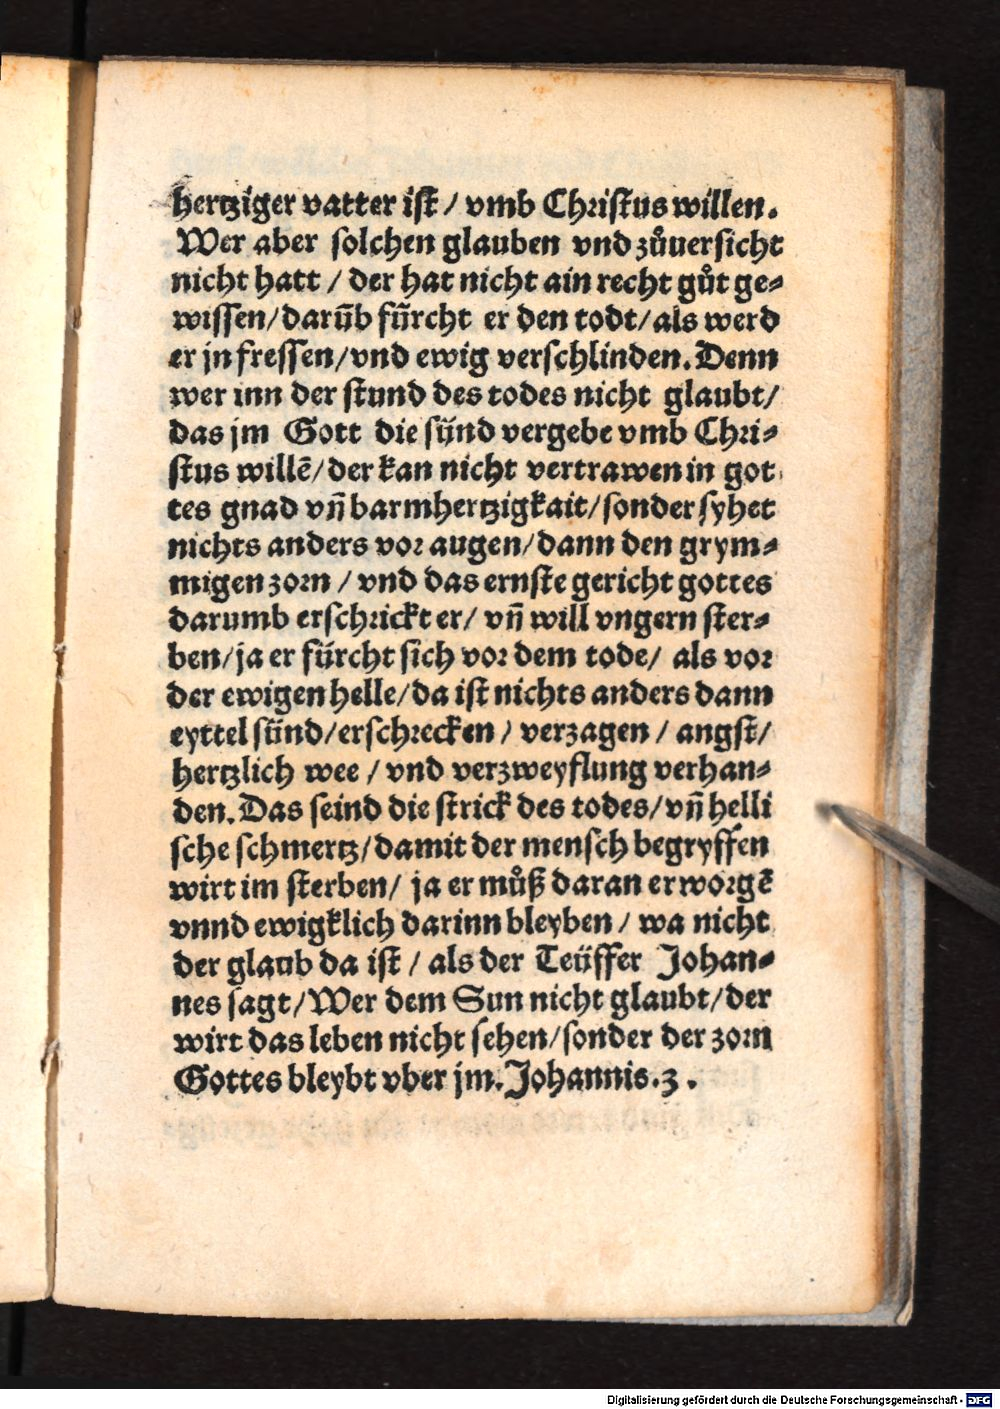 hertziger vatter ist / vmb Christus willen.
Wer aber solchen glauben vnd zůuersicht
nicht hatt / der hat nicht ain recht gůt ge-
wissen/darūb fürcht er den todt/als werd
er jn fressen/vnd ewig verschlinden. Denn
wer inn der stund des todes nicht glaubt/
das jm Gott die sünd vergebe vmb Chri-
stus willē/der kan nicht vertrawen in got
tes gnad vñ barmhertzigkait/sonder syhet
nichts anders vor augen/dann den grym-
migen zorn / vnd das ernste gericht gottes
darumb erschrickt er/ vñ will vngern ster-
ben/ja er fürcht sich vor dem tode/ als vor
der ewigen helle/da ist nichts anders dann
eyttel sünd/erschrecken / verzagen / angst/
hertzlich wee / vnd verzweyflung verhan-
den. Das seind die strick des todes/vñ helli
sche schmertz/damit der mensch begryffen
wirt im sterben/ ja er můß daran erworgē
vnnd ewigklich darinn bleyben / wa nicht
der glaub da ist / als der Teüffer Johan-
nes sagt/Wer dem Sun nicht glaubt/der
wirt das leben nicht sehen/sonder der zorn
Gottes bleybt vber jm. Johannis.3.
Digitalisierung gefördert durch die Deutsche Forschungsgemeinschaft - DFG